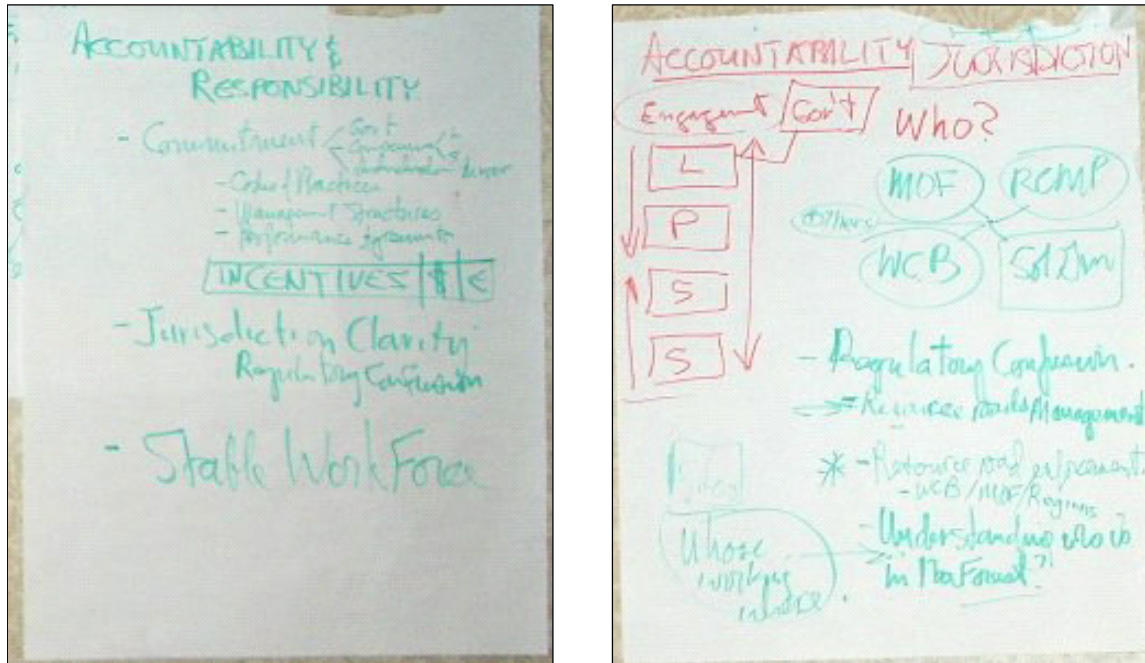 ACCOUNTABILITY &
RESPONSIBILITY
- Commitment
Gov't
- Codes of Practices
- Management Structures
- Performance Agreements
INCENTIVES | $ | €
- Jurisdiction Clarity
Regulatory Confusion
- Stable WorkForce
ACCOUNTABILITY JURISDICTION
Engagement Gov't Who?
L
P
S
S
MOF RCMP
Others
WCB
- Regulatory Confusion.
Resource roads Management
* - Resource road enforcement
- WCB/MOF/Regions
- Understanding who is
in the Forest?
Whose
working
where.